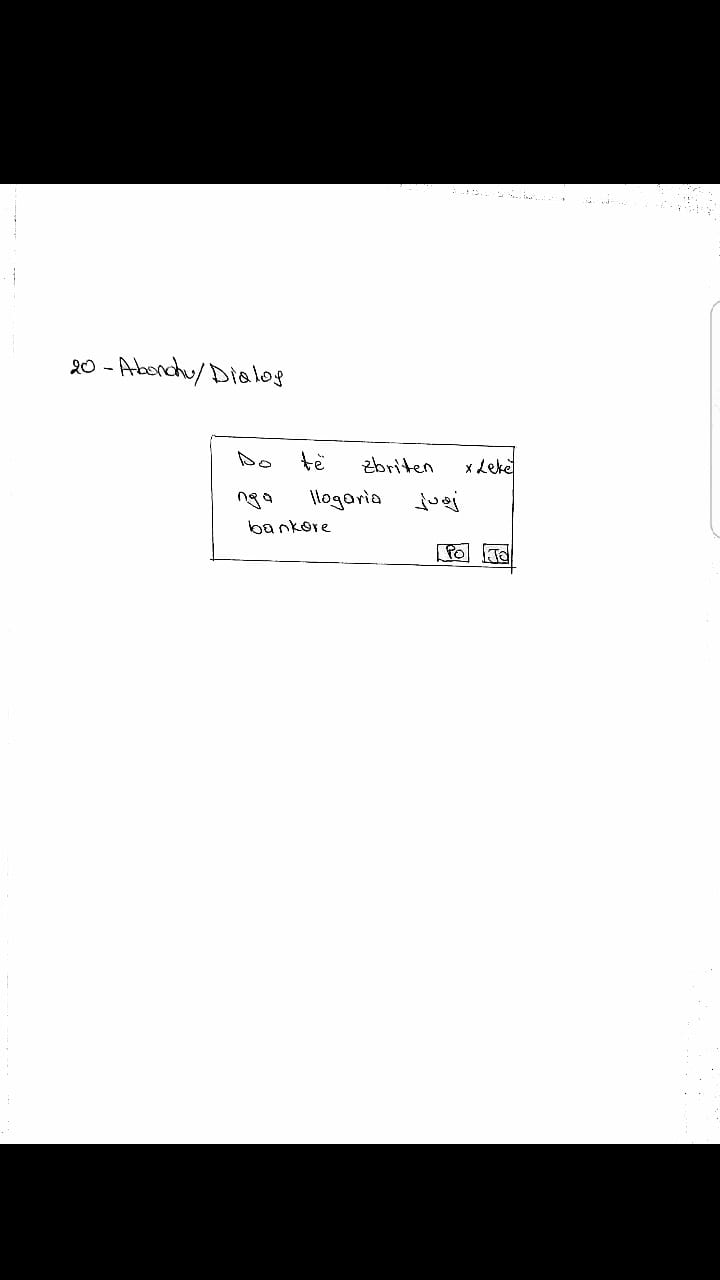 20 - Abonohu/Dialog
Do të zbriten x Lekë
nga llogaria juaj
bankore
Po Jo